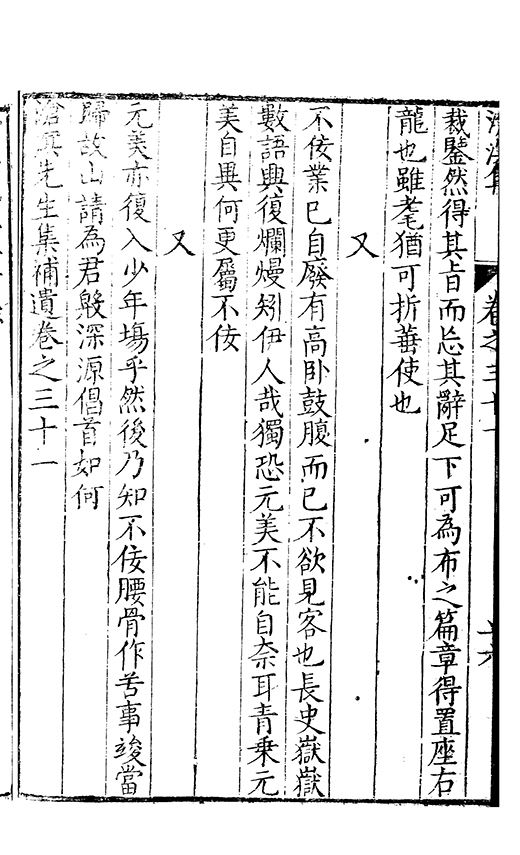 卷之三十一
裁鑒然得其旨而忘其辭足下可為布之篇章得置座右
龍也雖耄猶可折箠使也
又
不佞業已自廢有高卧鼓腹而已不欲見客也長史嶽嶽
數語興復爛熳矧伊人哉獨恐元美不能自奈耳青乗元
美自興何更屬不佞
又
元美亦復入少年場乎然後乃知不佞腰骨作苦事竣當
歸故山請為君殷深源倡首如何
滄溟先生集補遺卷之三十一